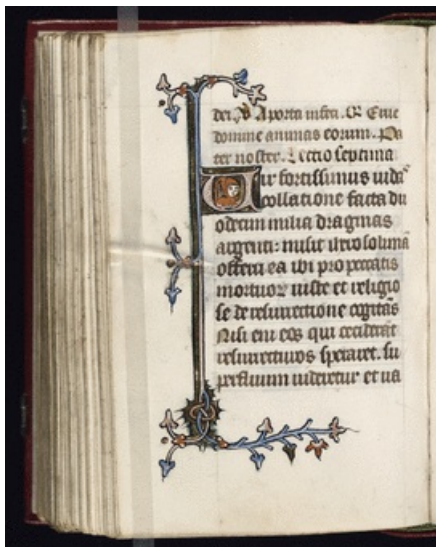 dei. V̄ A porta inferi. R Erue
domine animas eorum. Pa
ter noster. Lectio septima
Vir fortissimus iuda͂
collatione facta du
odecim milia dragmas
argenti: misit iherosolima͂
offerri ea ibi pro peccatis
mortuor iuste et religio
se de resurrectione cogitas
Nisi eni eos qui ceciderat
resurrecturos speraret. su
perfluum videretur et va